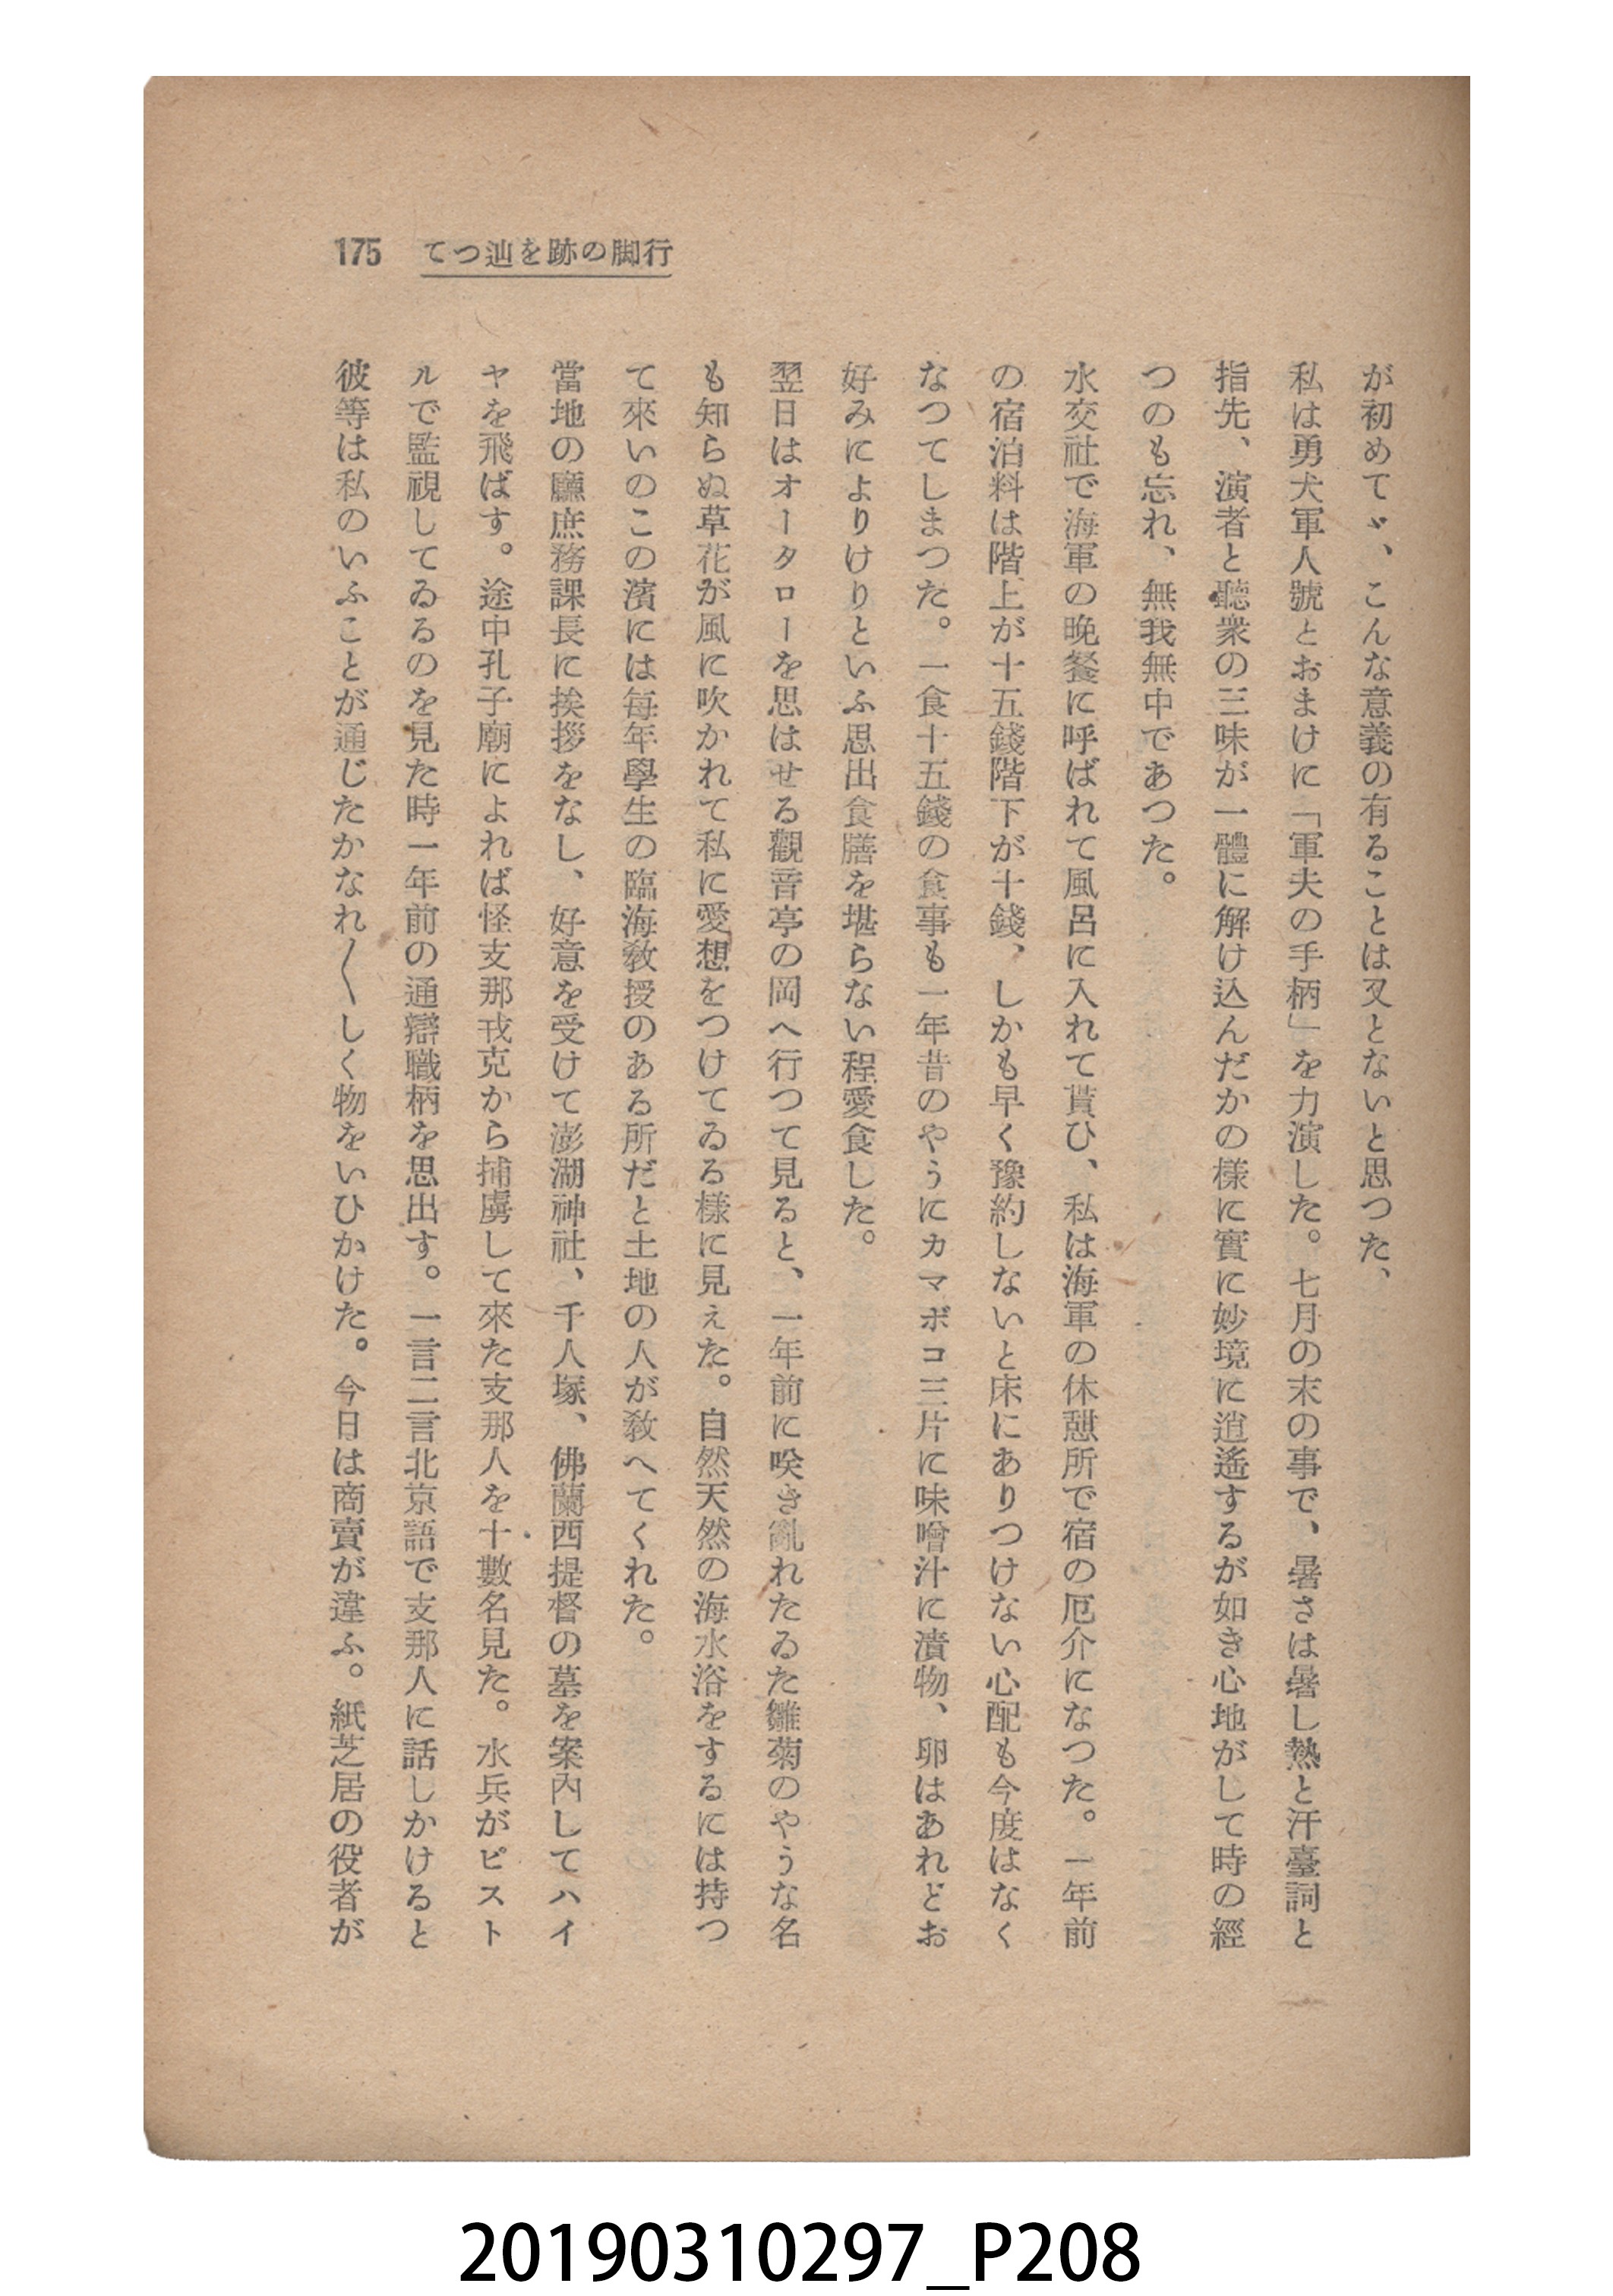 175 てつ辿を跡の脚行
が初めてゞ、こんな意義の有ることは又とないと思つた、
私は勇犬軍人號とおまけに「軍夫の手柄」を力演した。七月の末の事で、暑さは暑し熱と汗臺詞と
指先、演者と聽衆の三味が一體に解け込んだかの樣に實に妙境に逍遙するが如き心地がして時の經
つのも忘れ、無我無中であつた。
水交社で海軍の晩餐に呼ばれて風呂に入れて貰ひ、私は海軍の休憩所で宿の厄介になつた。一年前
の宿泊料は階上が十五錢階下が十錢、しかも早く豫約しないと床にありつけない心配も今度はなく
なつてしまつた。一食十五錢の食事も一年昔のやうにカマボコ三片に味噌汁に漬物、卵はあれどお
好みによりけりといふ思出食膳を堪らない程愛食した。
翌日はオータローを思はせる觀音亭の岡へ行つて見ると、一年前に咲き亂れたゐた雛菊のやうな名
も知らぬ草花が風に吹かれて私に愛想をつけてゐる樣に見えた。自然天然の海水浴をするには持つ
て來いのこの濱には每年學生の臨海敎授のある所だと土地の人が敎へてくれた。
當地の廳庶務課長に挨拶をなし、好意を受けて澎湖神社、千人塚、佛蘭西提督の墓を案內してハイ
ヤを飛ばす。途中孔子廟によれば怪支那戎克から捕虜して來た支那人を十數名見た。水兵がピスト
ルで監視してゐるのを見た時一年前の通辯職柄を思出す。一言二言北京語で支那人に話しかけると
彼等は私のいふことが通じたかなれ〱しく物をいひかけた。今日は商賣が違ふ。紙芝居の役者が
20190310297_P208